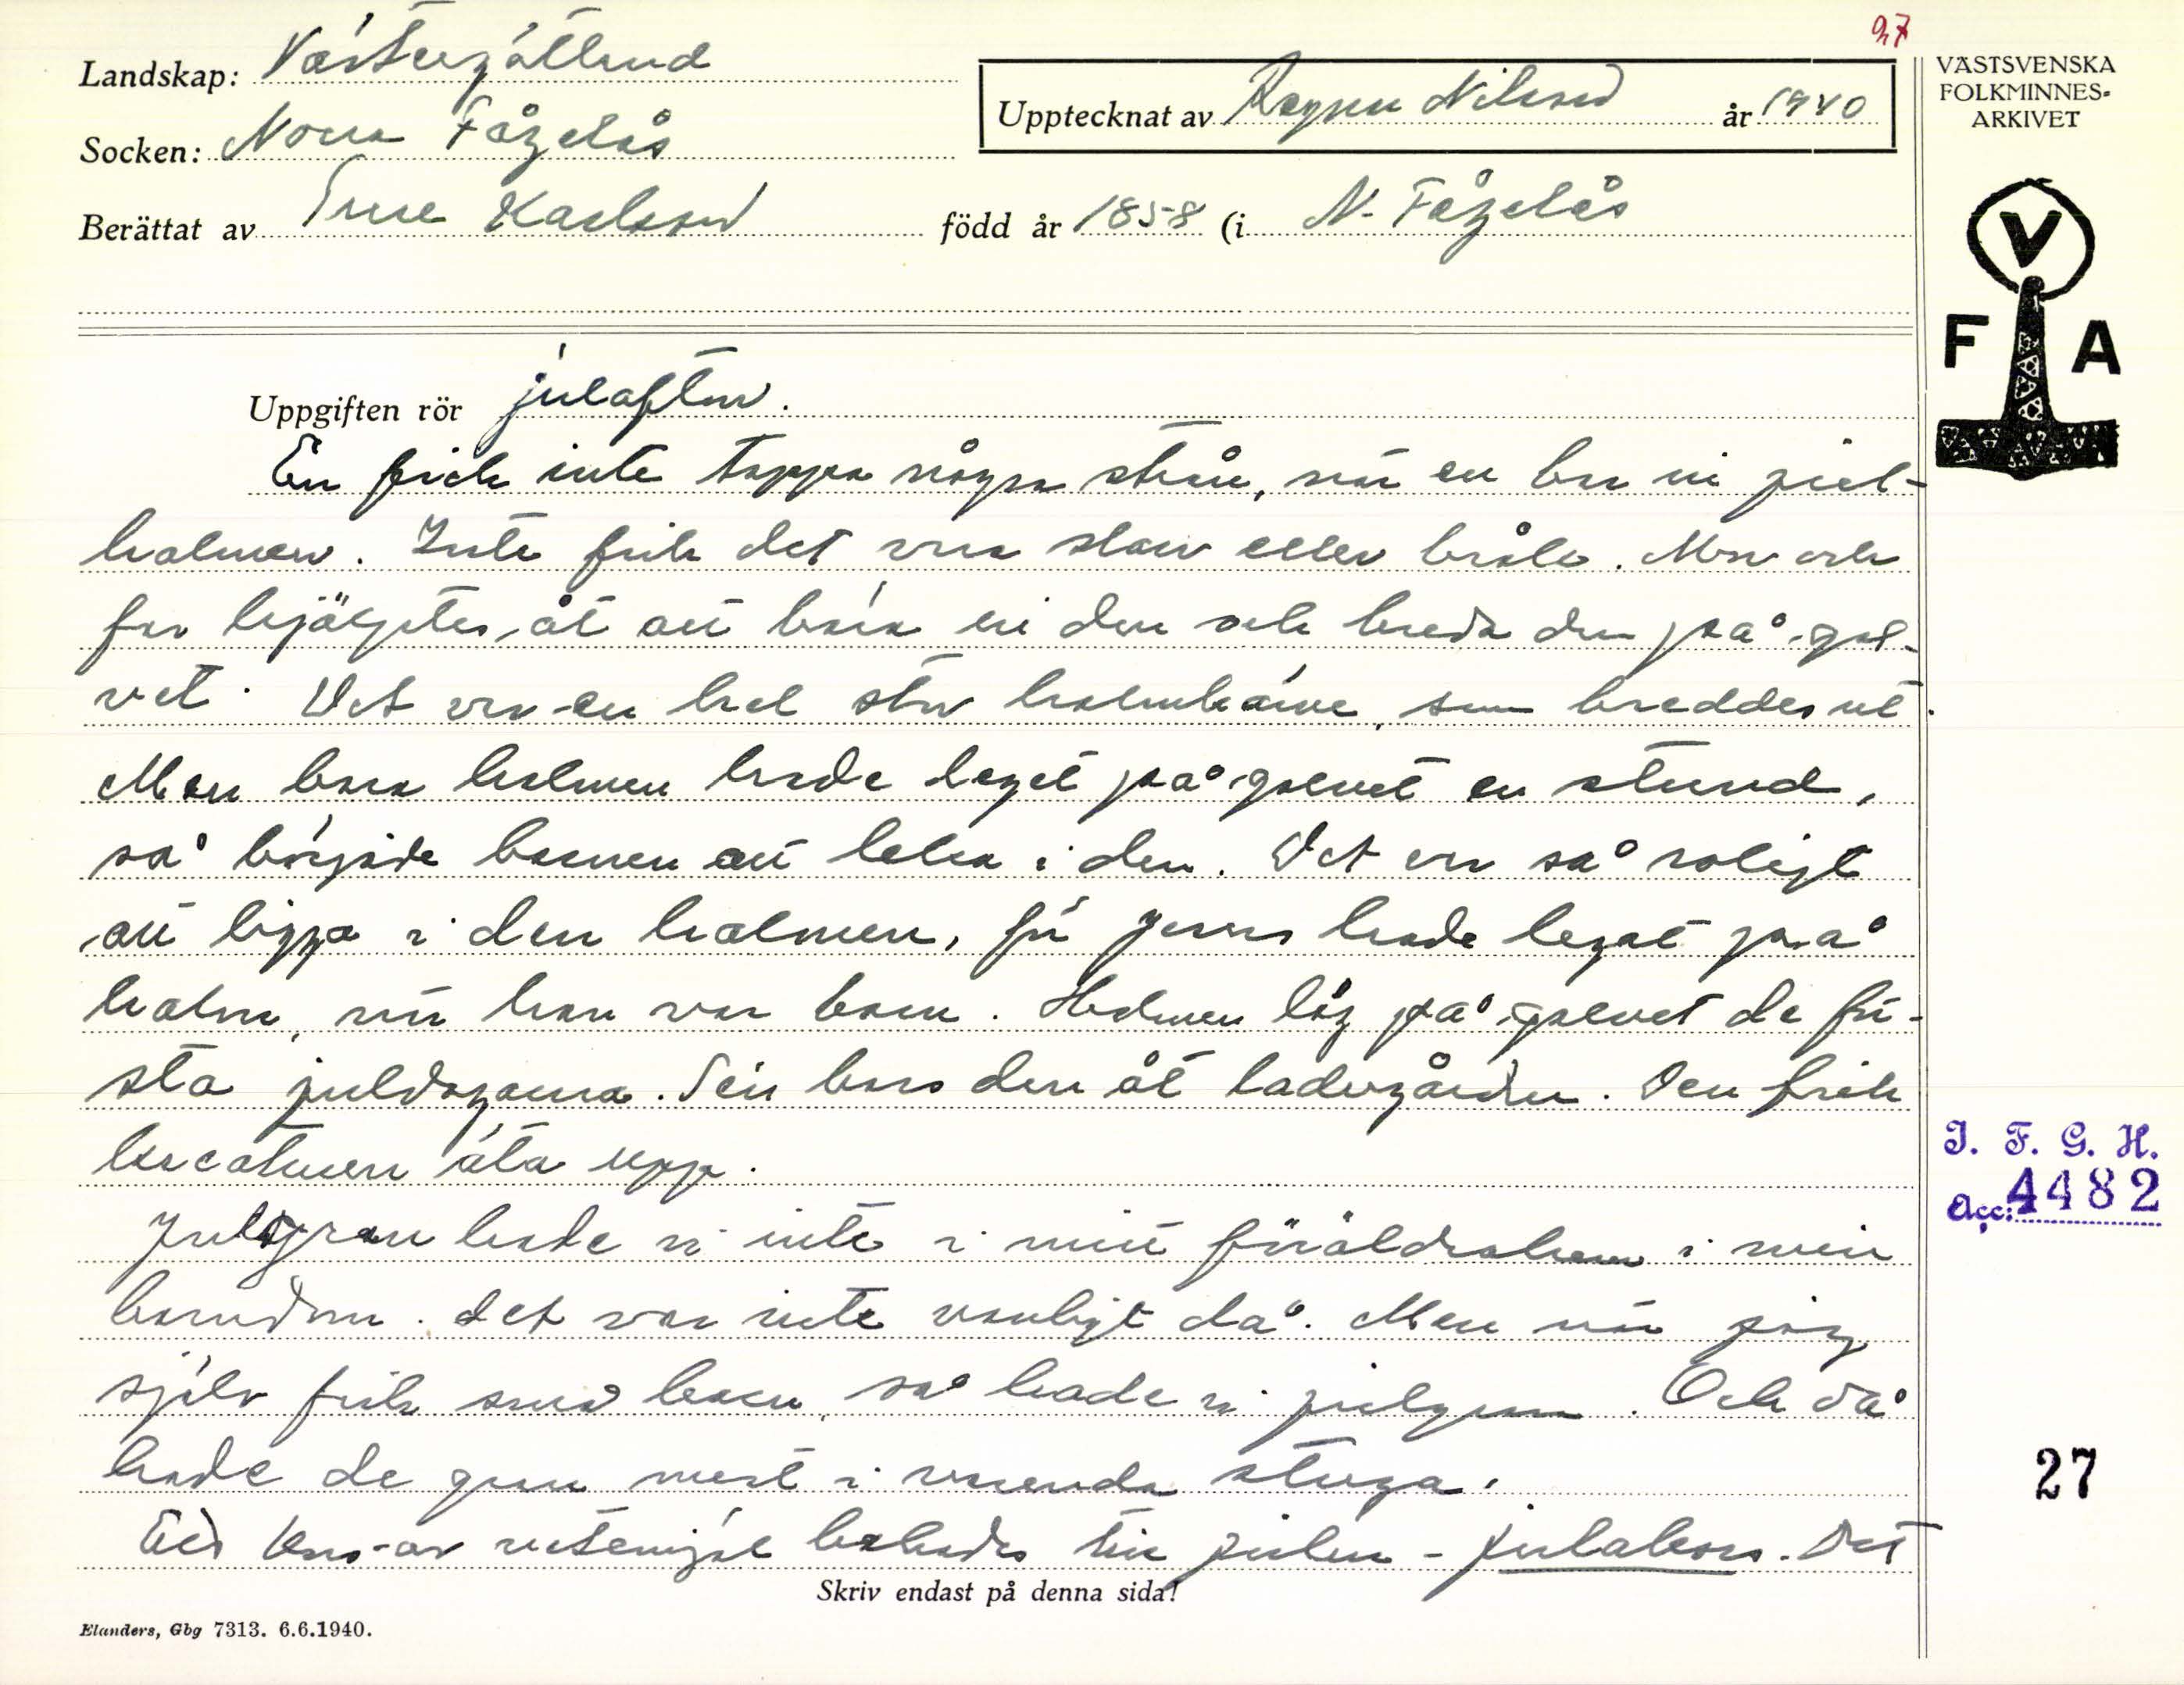 27
Landskap: Västergötland
Upptecknat av Ragnar Nilsson år 1940
Socken: Norra Fågelås
Berättat av Karlsson född år 1858 (i N. Fågelås
VÄSTSVENSKA
FOLKMINNES-
ARKIVET
V
F A
Uppgiften rör julafton.
En fick inte tappa några strån, när en bar in jul-
halmen. Inte fick det vara slarv eller bråk. Mor och
far hjälptes åt att bära in den och breda den på gol-
vet. Det var en hel stor halmkärve, som breddes ut.
Men bara halmen hade legat på golvet en stund,
så började barnen att leka i den. Det var så roligt
att ligga i den halmen, för Jesus hade legat på
halm, när han var barn. Halmen låg på golvet de för-
sta juldagarna. Sen bars den åt ladugården. Den fick
kreaturen äta upp.
Julgran hade vi inte i mitt föräldrahem i min
barndom. Det var inte vanligt då. Men när jag
själv fick små barn, så hade vi julgran. Och då
hade de gran mest i varenda stuga.
Ett kors av vetemjöl bakades till julen - julakors. Det
Skriv endast på denna sida!
Elanders, Gbg 7313. 6.6.1940.
I. F. G. H.
Acc: 4482
27